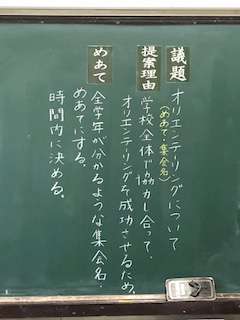 議題
オリエンテーリングについて
(めあて・集会名)
提案理由
学校全体で協力し合って、
オリエンテーリングを成功させるため。
めあて
全学年が分かるような集会名・
めあてにする。
時間内に決める。